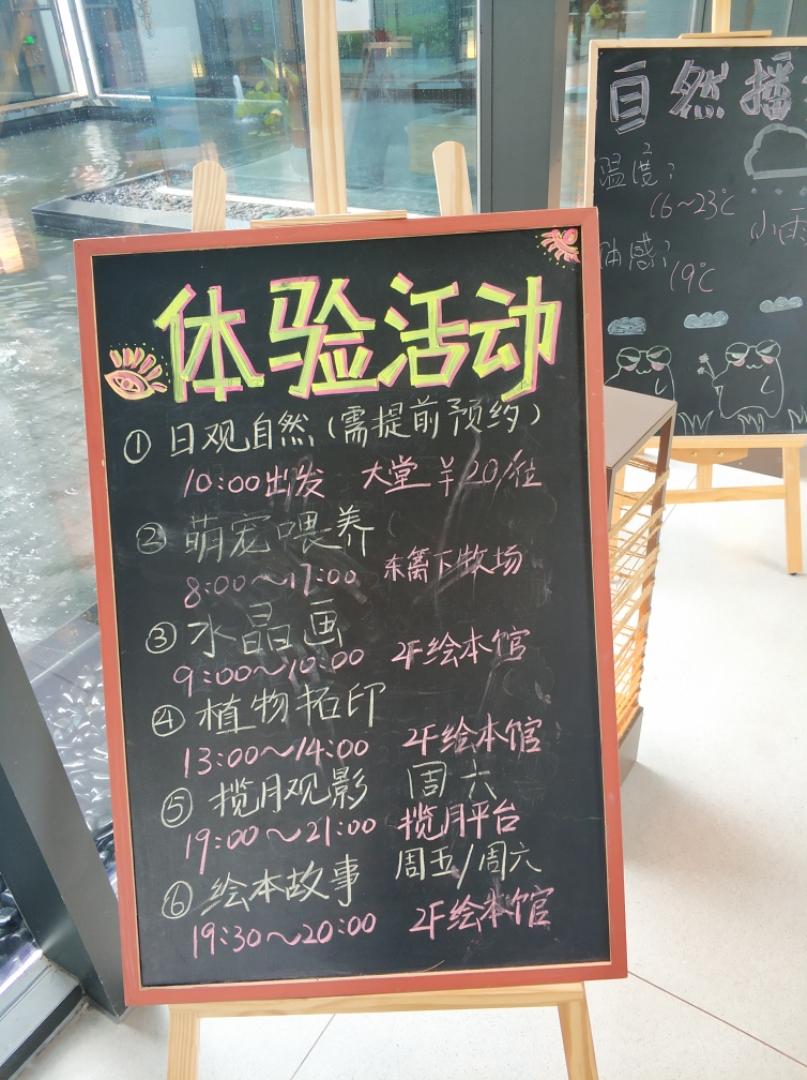 体验活动
① 日观自然(需提前预约)
10:00出发 大堂 羊20/位
② 萌宠喂养
8:00～17:00 东篱下牧场
③ 水晶画
9:00～10:00 2F绘本馆
④ 植物拓印
13:00～14:00 2F绘本馆
⑤ 揽月观影 周六
19:00～21:00 揽月平台
⑥ 绘本故事 周五/周六
19:30～20:00 2F绘本馆
自然播
温度:
16～23℃
小雨
体感:
19℃